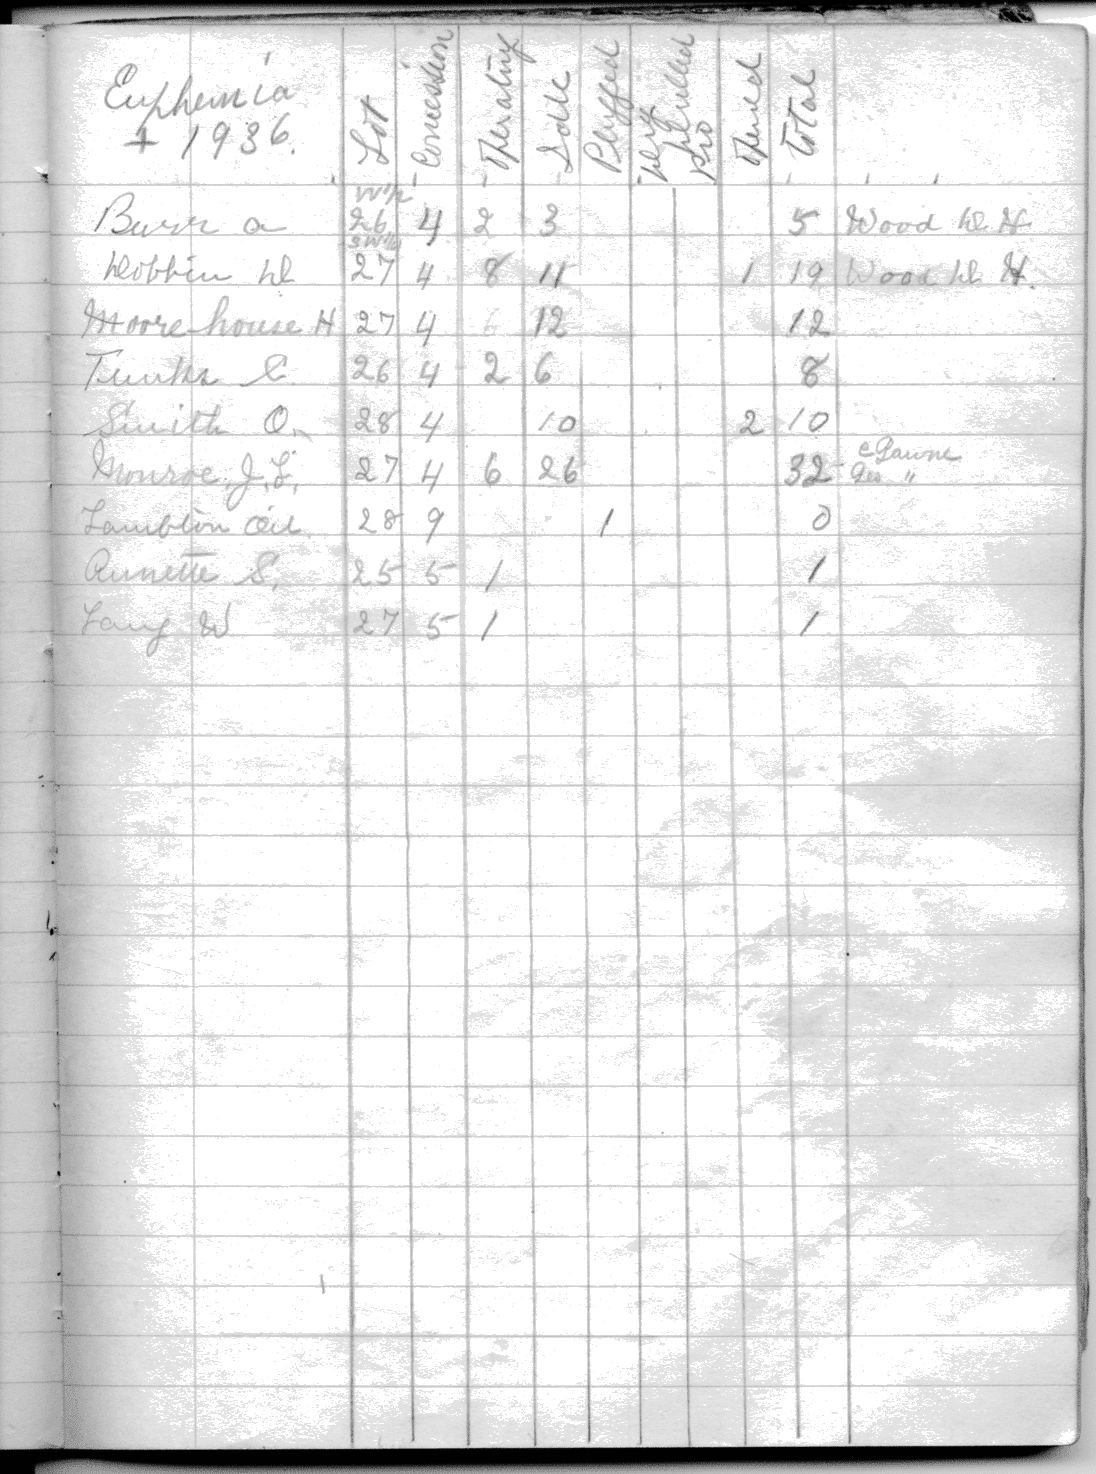 Euphemia
+ 1936.
Lot Concession Operating Idle Plugged Newly Drilled Pro Opened Total
W 1/2
Burr A 26 4 2 3 5 Wood W. H
SW 1/4
Dobbin W 27 4 8 11 1 19 Wood W H.
Moorehouse H 27 4 12 12
Tunks C. 26 4 2 6 8
Smith O. 28 4 10 2 10
C Pawne
Monroe, J. L. 27 4 6 26 32 Geo "
Lambton Oil 28 9 1 0
Annette S. 25 5 1 1
Lang W 27 5 1 1